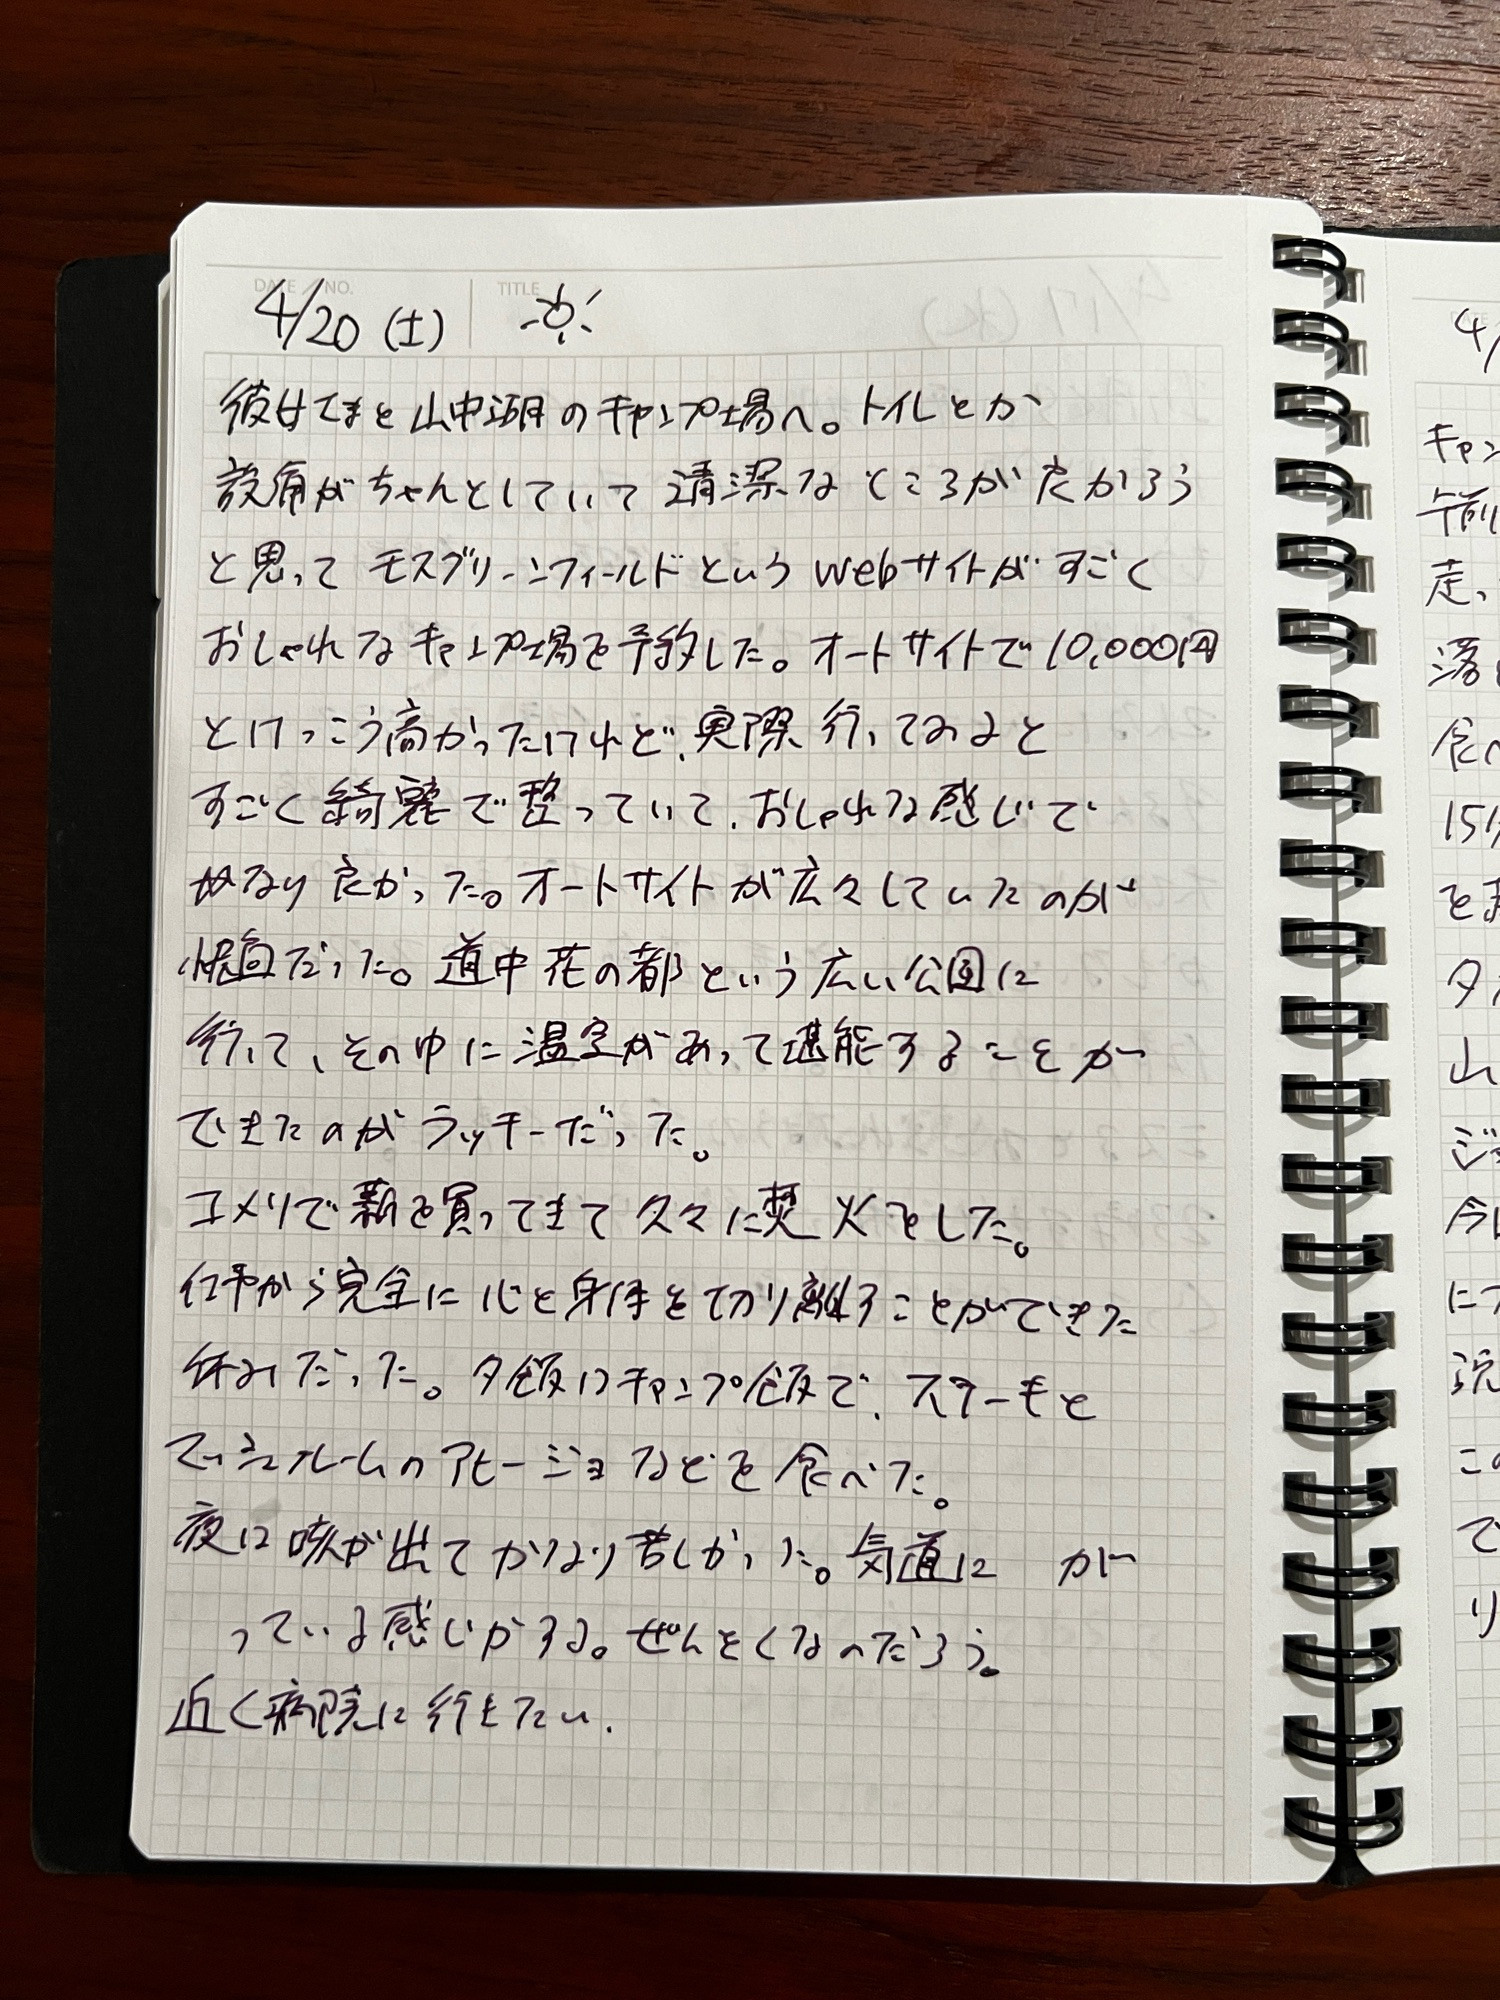 DATE / NO.
TITLE
4/20 (土)
と山中湖のキャンプ場へ。トイレとか
設備がちゃんとしていて清潔なところが良かろう
と思ってモスグリーンフィールドというwebサイトがすごく
おしゃれなキャンプ場を予約した。オートサイトで10,000円
とけっこう高かったけれど、実際行ってみると
すごく綺麗で整っていて、おしゃれな感じで
かなり良かった。オートサイトが広々していたのが
だった。道中花の都という広い公園に
行って、その中に温室があって堪能することが
できたのがラッキーだった。
コメリで薪を買ってきて久々に焚火をした。
から完全に心と身体を切り離すことができた
休みだった。夕飯はキャンプ飯で、ステーキと
マッシュルームのアヒージョなどを食べた。
夜は咳が出てかなり苦しかった。気道に が
っている感じがする。ぜんそくなのだろう。
近く病院に行きたい.
4/
キャン
午前
走っ
落
食べ
15分
を
夕
山
ジ
今
に
浣
この
で
り